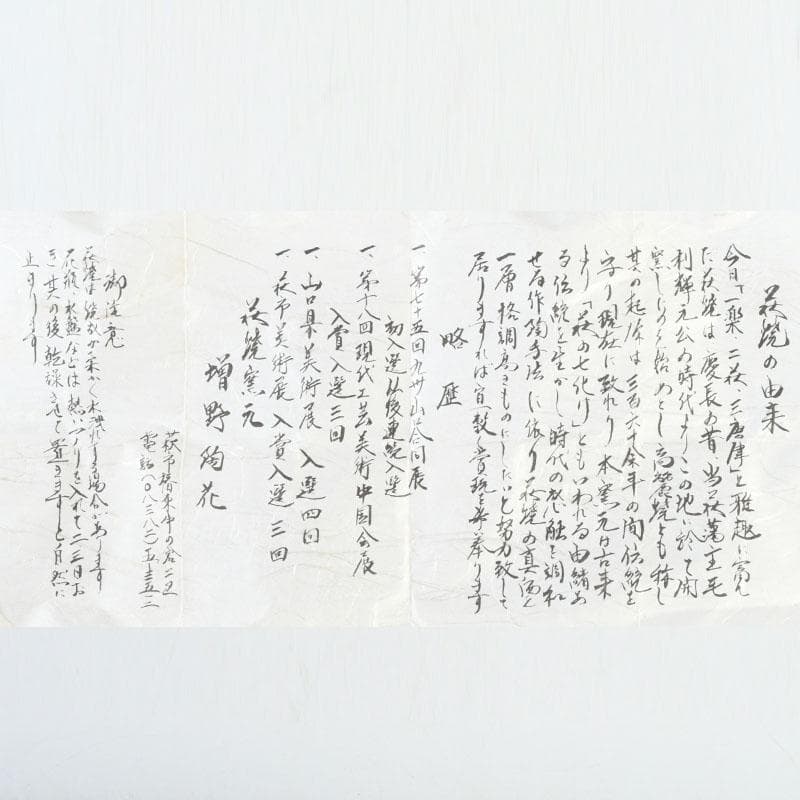 萩焼の由来
今日「一楽、二萩、三唐津」と雅趣に富ん
だ萩焼は慶長の昔、当萩藩主毛
利輝元公の時代よりこの地に於て開
窯しにより始めとし高麗焼とも称し
其の起原は三百六十余年の間伝統を
守り現在に致れり本窯元は古来
より「萩の七化け」ともいわれる由緒あ
る伝統を生かし時代の感触を調和
せる作陶手法に依り萩焼の真価を
一層格調高きものにしたいと努力致して
居りますれば宜敷く賞玩を希い奉ります
略歴
一、第七十五回九州山口合同展
初入選以後連続入選
一、第十八回現代工芸美術中国会展
入賞入選三回
一、山口県美術展 入選四回
一、萩市美術展 入賞入選三回
萩焼窯元
増野陶花
萩市椿東中の倉二区
電話(〇八三八二)五-三五一二
御注意
萩焼は焼きが柔かく水洩れする場合があります
花瓶、水盤などは熱いノリを入れて二三日お
き其の後乾燥させて置きますと自然に
止まります